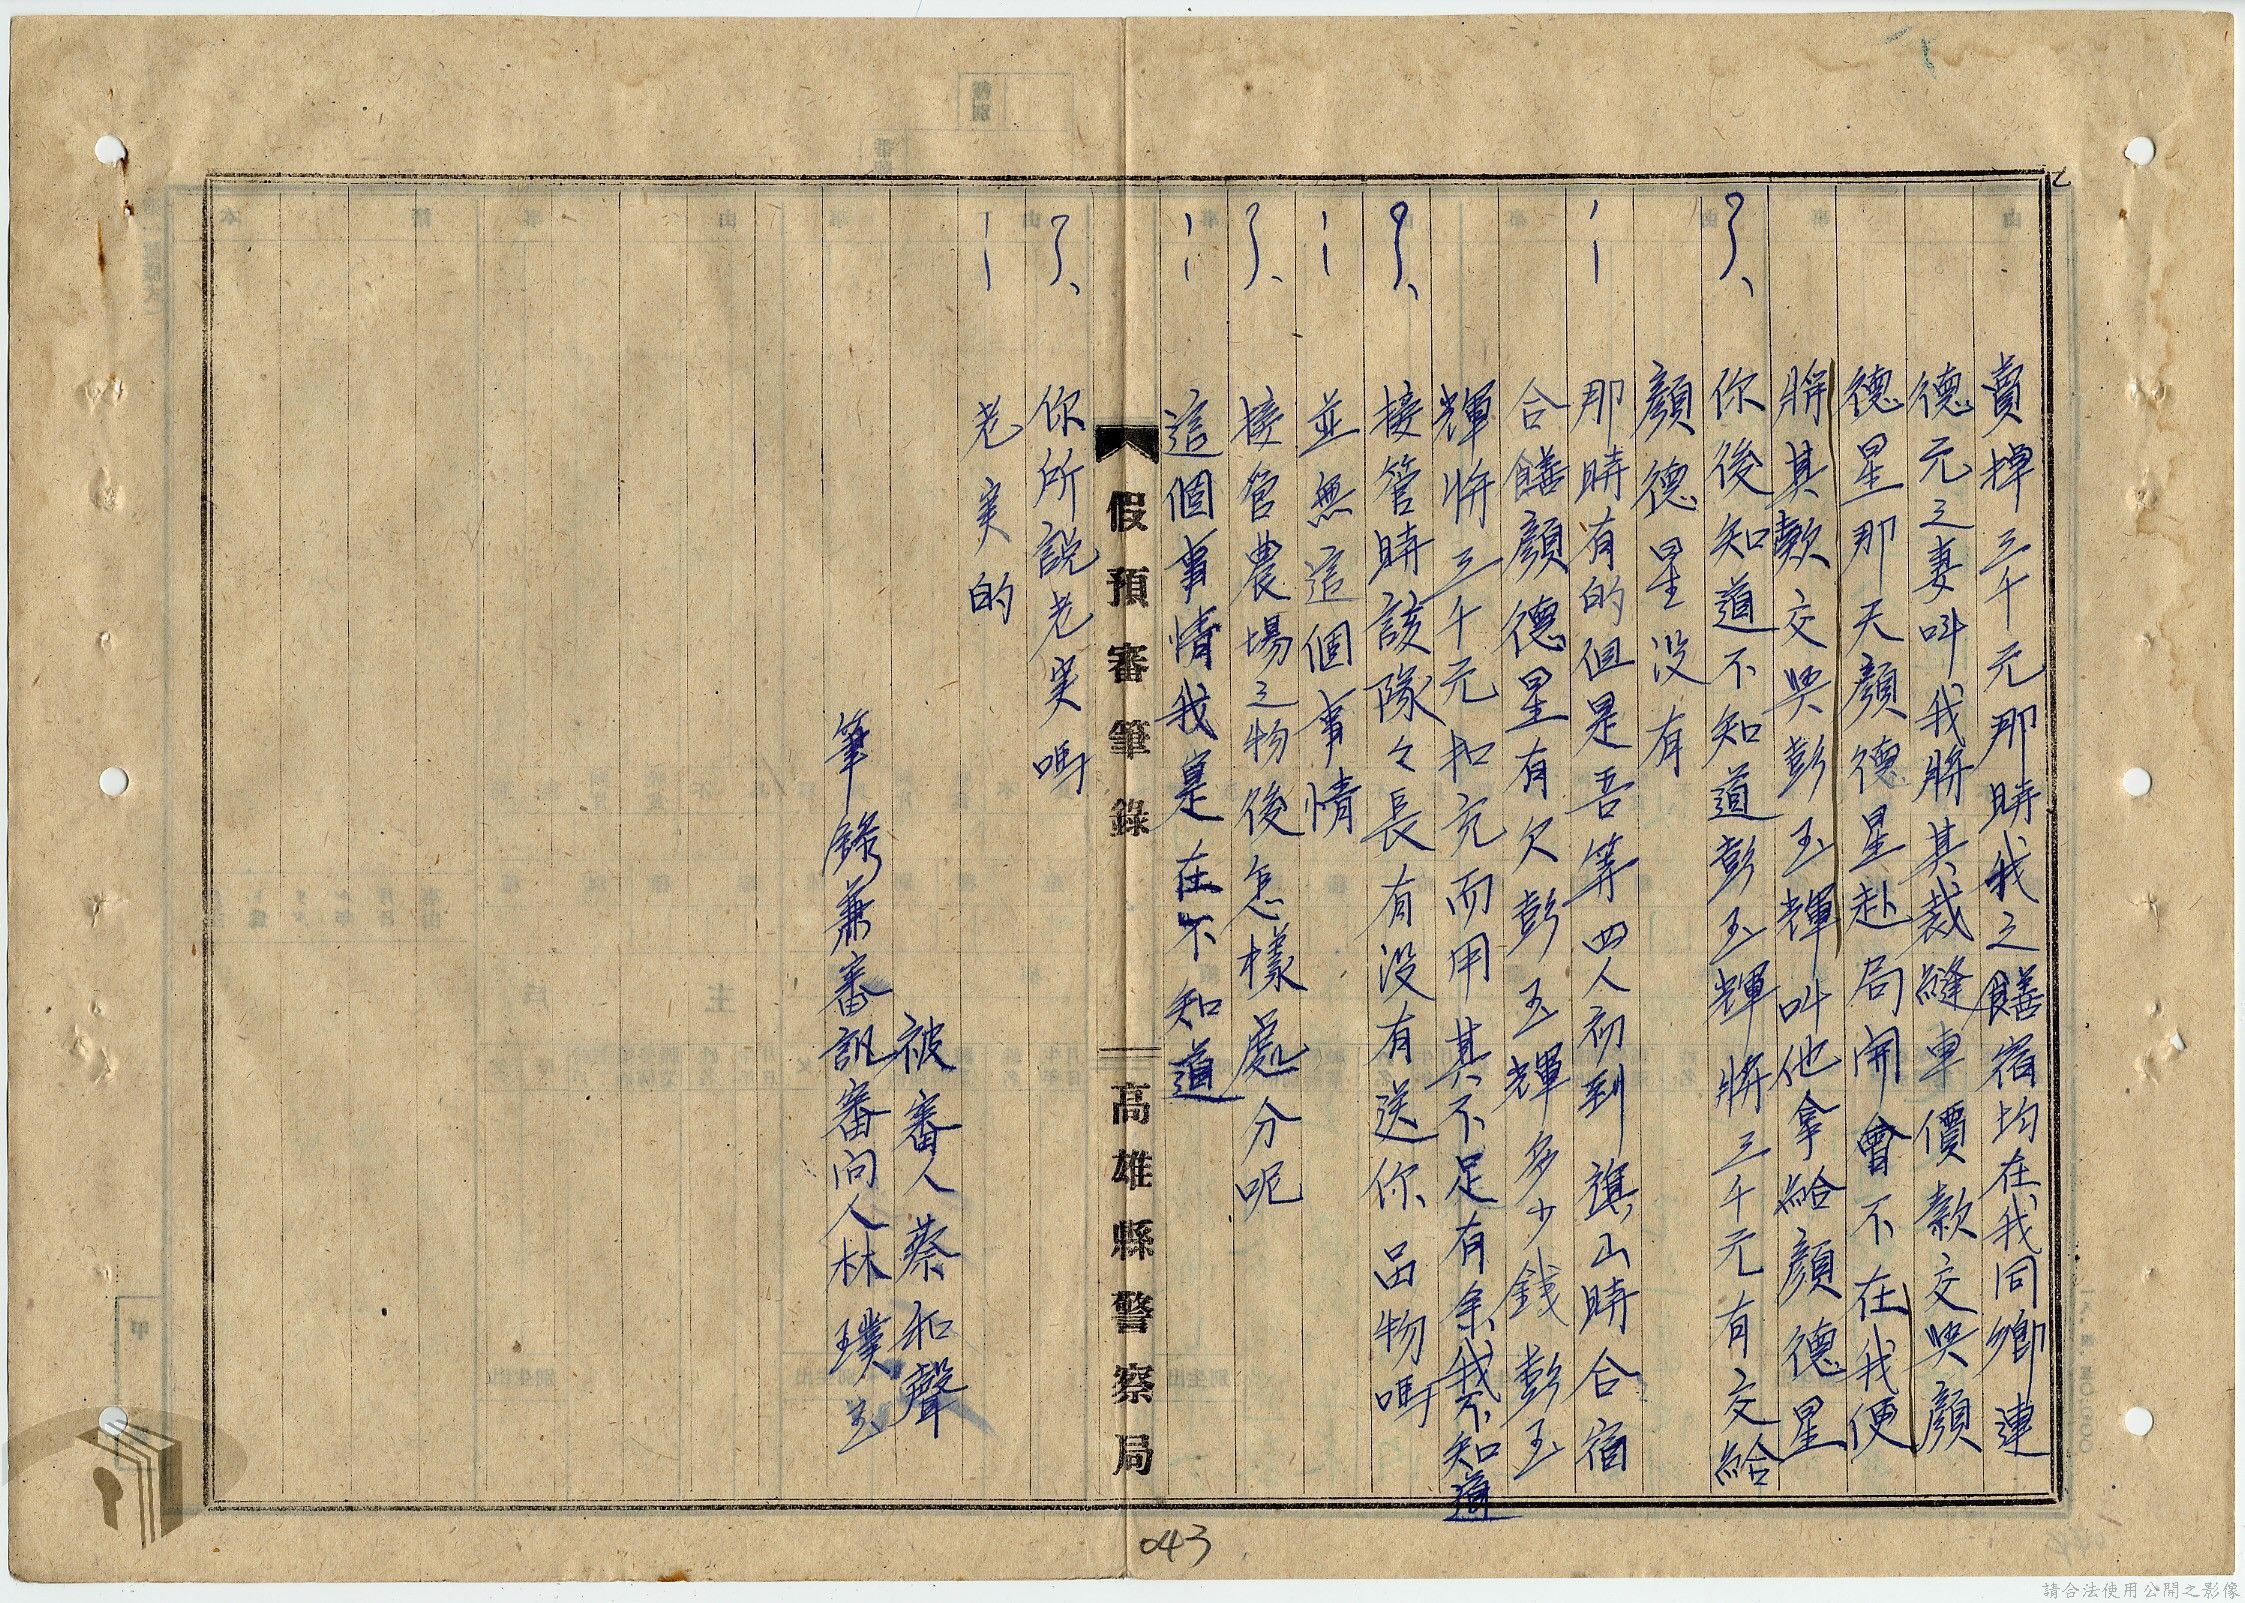 賣掉三千元那時我之膳宿均在我同鄉連
德元之妻叫我將其裁縫車價款交與顏
德星那天顏德星赴局開會不在我便
將其款交與彭玉輝叫他拿給顏德星
？、你後知知道不知道彭玉輝將三千元有交給
顏德星没有
｜那時有的但是吾等四人初到旗山時合宿
合膳顏德星有欠彭玉輝多少錢彭玉
輝將三千元扣充而用其不足有余我不知道
？、接管時該隊々長有没有送你品物嗎
｜並無這個事情
？、接管農場之物後怎樣處分呢
｜這個事情我是在不知道
假預審筆錄 高雄縣警察局
？、你所説老実嗎
｜老実的
被審人蔡和聲
筆錄兼審訊審问人林璞玉
043
請合法使用公開之影像